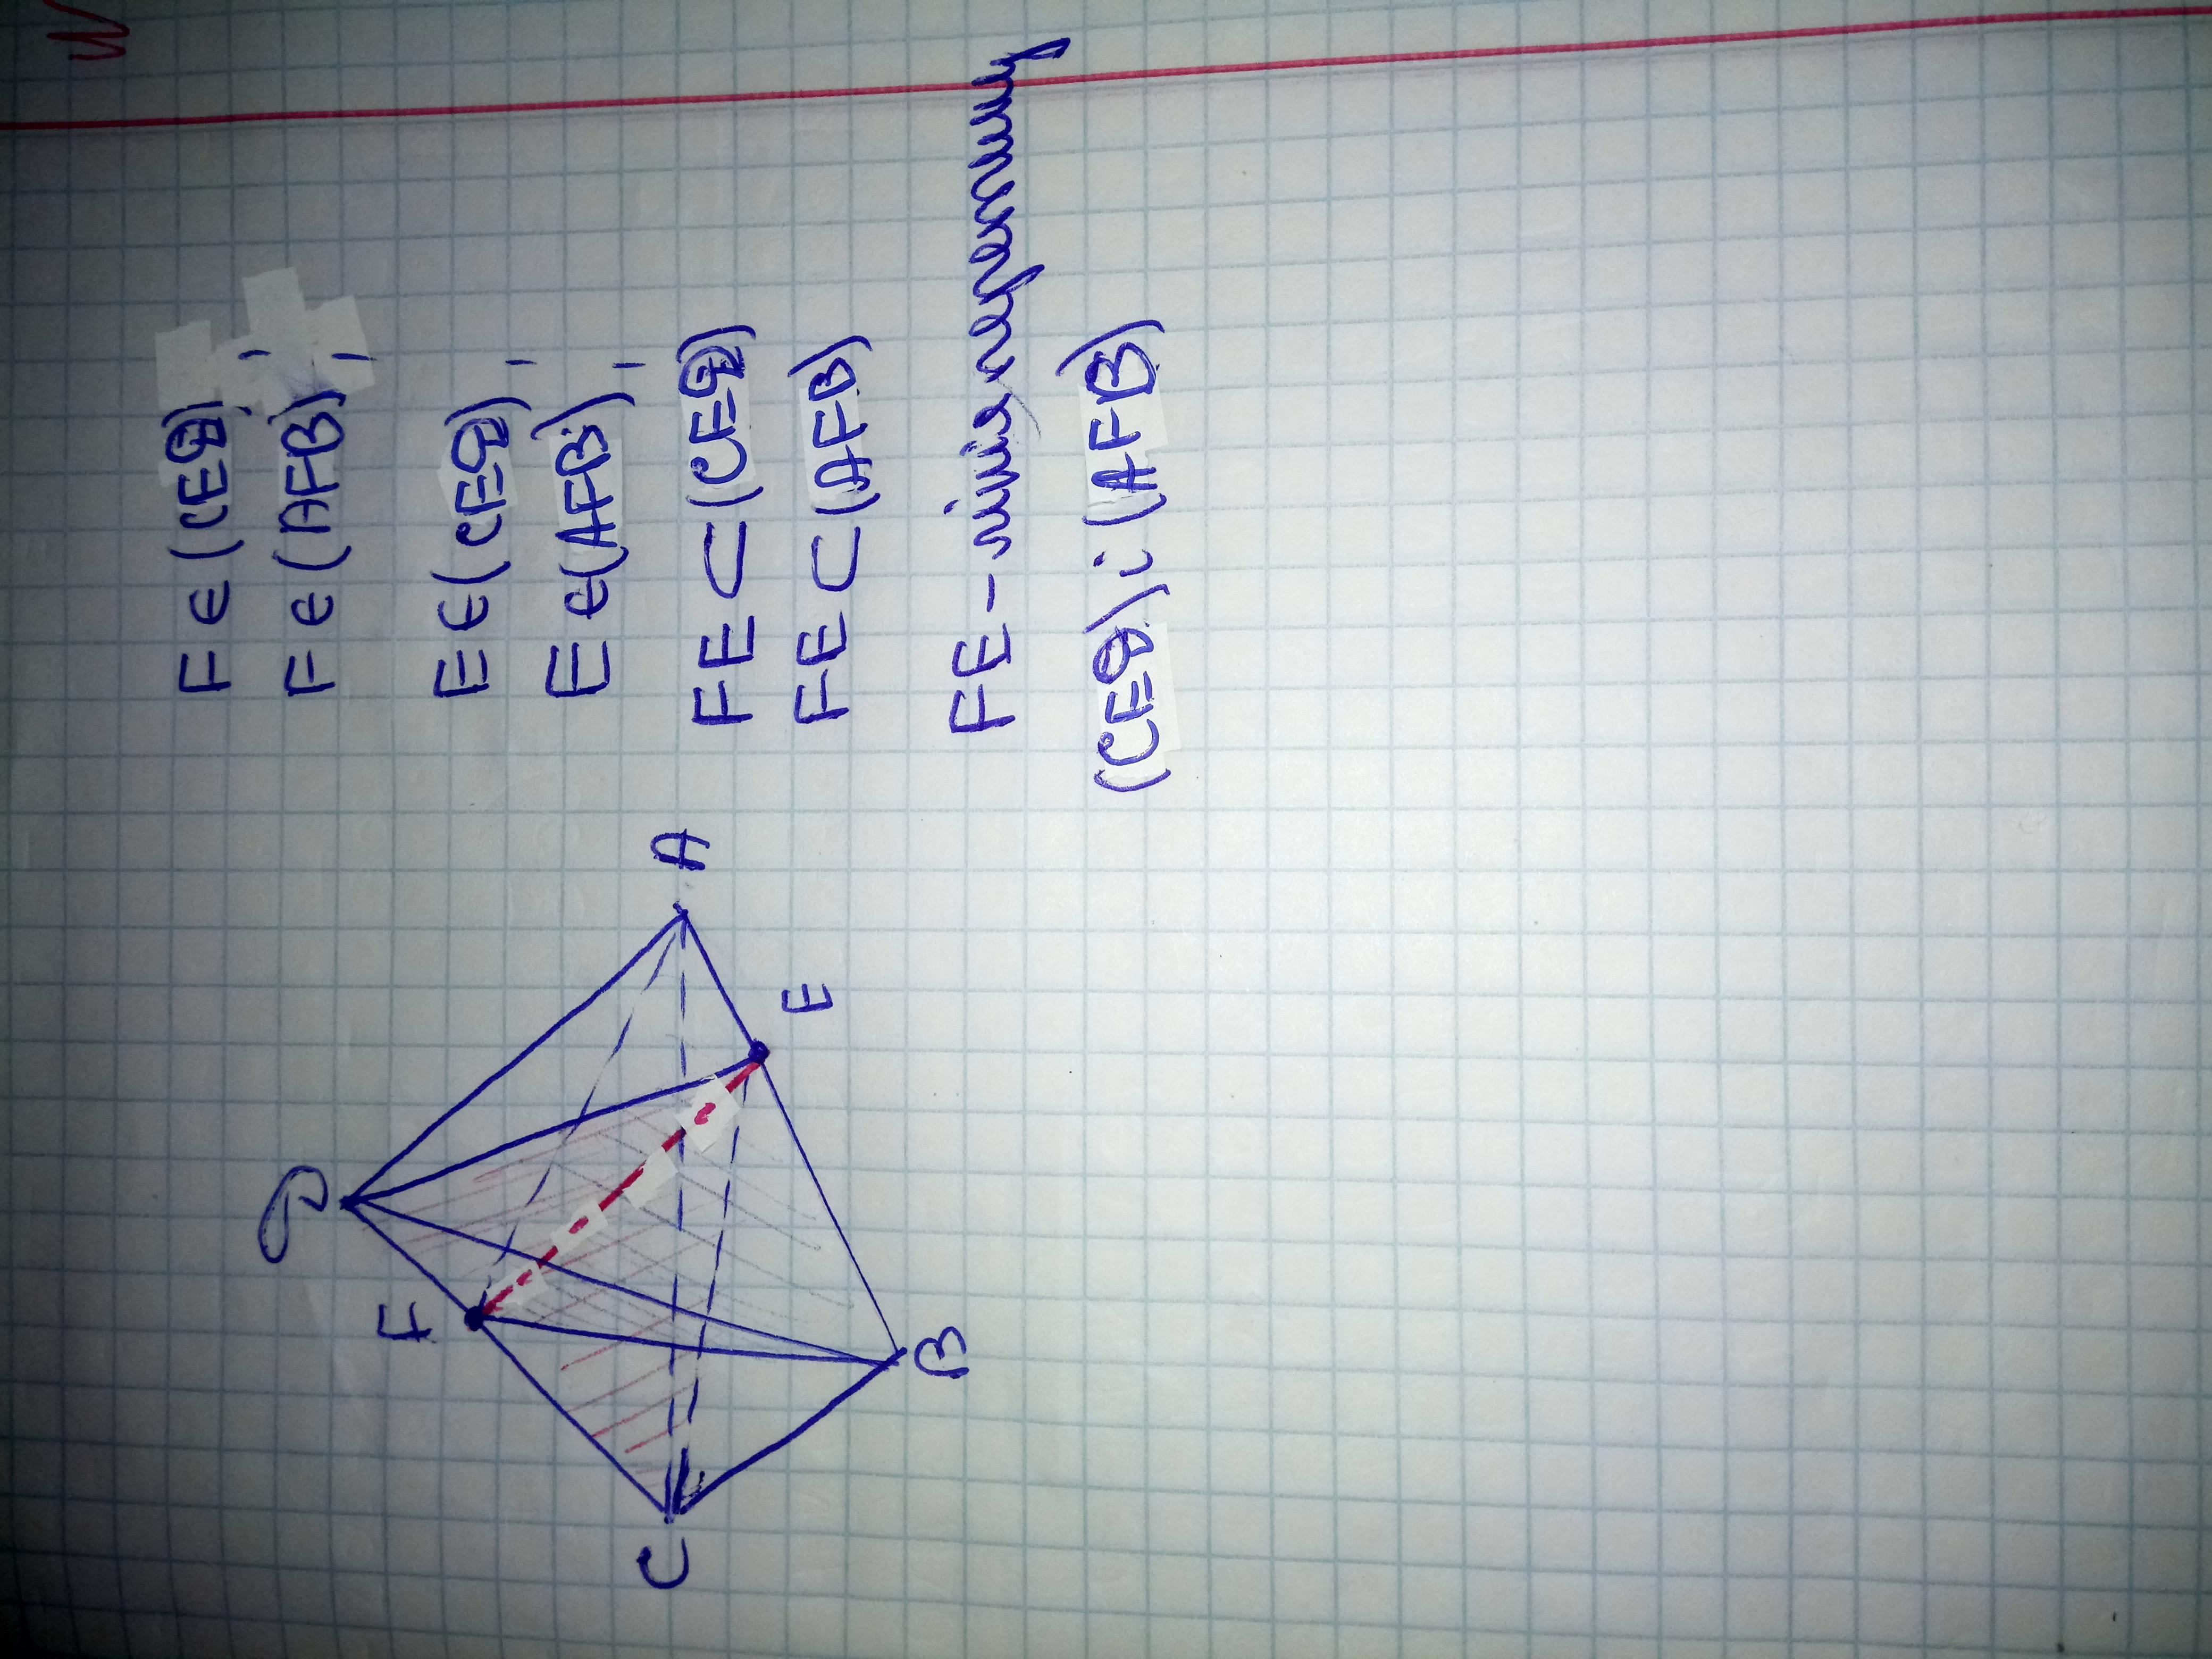 F ∈ (CED),
F ∈ (AFB),
E ∈ (CED),
E ∈ (AFB),
FE ⊂ (CED)
FE ⊂ (AFB)
FE - лінія перетину
(CED) і (AFB)
D
F
A
E
C
B